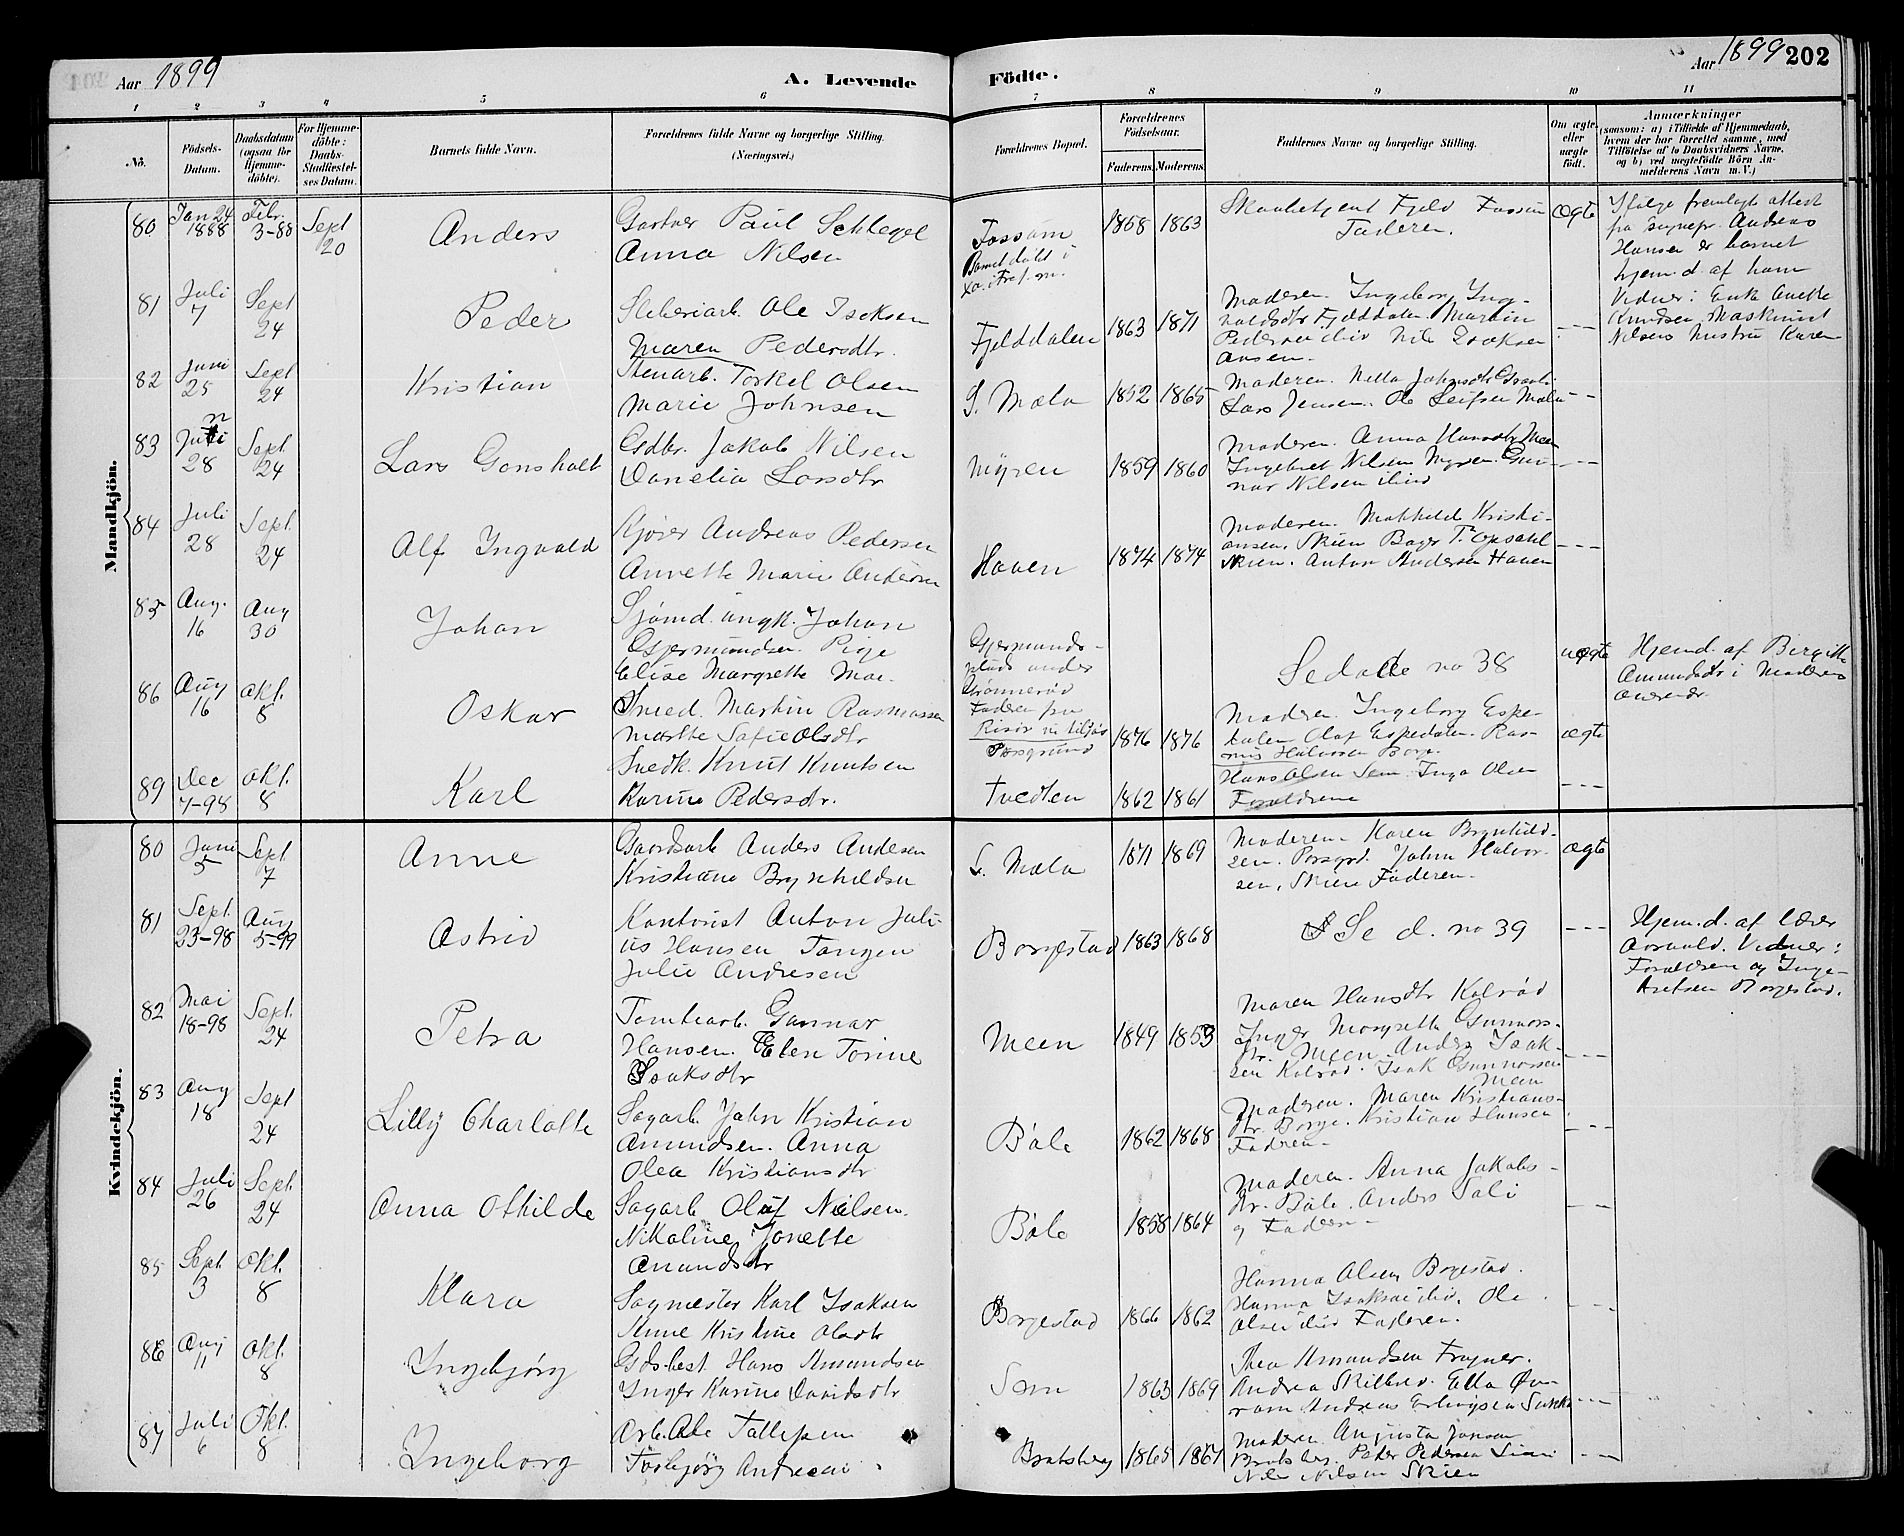 Aar 1899
A. Levende Födte.
Aar 1899 202
1 2 3 4 5 6 7 8 9 10 11
No. Födsels-Datum. Daabsdatum (ogsaa for Hjemmedöbte). For Hjemmedöbte: Daabs-Stadfæstelses Datum. Barnets fulde Navn. Forældrenes fulde Navne og borgerlige Stilling. (Næringsvei.) Forældrenes Bopæl. Forældrenes Födselsaar. Faderens Moderens Faddernes Navne og borgerlige Stilling. Om ægte eller uægte födt. Anmærkninger (saasom: a) i Tilfælde af Hjemmedaab, hvem der har forrettet samme, med Tilföielse af to Daabsvidners Navne, og b) ved uægtefödte Börn Anmelderens Navn m. V.)
Mandkjön.
80 Jan 24 1888 Febr. 3-88 Sept 20 Anders Gartner Paul Schlegel
Anna Nilsen Fossum 1858 1863 Faderen. ægte Ifølge fremlagt attest
fra sognepr. Andreas
Hansen er barnet
hjem.d. af ham
Vidner: Enke Anette
Knudsen, Maskinist
Nilsens hustru Karen
81 Juli 7 Sept 24 Peder Ole Isaksen
Maren Pedersdtr. Fjelddalen 1863 1871 Maderen. Ingeborg Ing-
Fjelddalen Martin
Pedersen ibid Nils Isaksen
---
82 Juni 25 Sept 24 Kristian Stenarb. Torkel Olsen
Marie Johnsen S. Mæla 1852 1865 Maderen.
Lars Jensen. Ole Leifsen Mæla --
83 Juni 28 Sept. 24 Lars Gonsholt Gdbr. Jakob Nilsen
Danelia Larsdtr Myren 1859 1860 Maderen. Anna Hansdtr Meen
Ingebret Nilsen Myren. Gun-
nar Nilsen ibid ---
84 Juli 28 Sept. 24 Alf Ingvald Kjører Andreas Pedersen
Annette Marie Andersen Haven 1874 1874 Maderen. Mathilde Kristi-
ansen, Skien Bager T. Opsahl
Skien. Anton Andersen Haven ---
85 Aug. 16 Aug 30 Johan Sjømd. ungk. Johan
Gjermundsen. Pige
Elise Margrethe Mar. Gjermunds-
plads under
Grønnerød
Faderen fra
Risør Se dåb no 38 uægte Hjemd. af Birgitte
Amundsdtr i Moderens
86 Aug 16 Okt. 8 Oskar Smed. Martin Rasmussen
Marthe Sofie Olsdtr Porsgrund 1876 1876 Maderen. Ingeborg Espe-
dalen Olaf Espedalen. Ras-
mus Halvorsen Borge. ægte
89 Dec 7-98 Okt. 8 Karl Snedk. Knut Knutsen
Karine Pedersdtr. Tvedten 1862 1861 Hans Olsen Sem. Inga Olsen
Forældrene ---
Kvindekjön.
80 Juni 5 Sept 7 Anne Gaardsarb Anders Andersen
Kristiane Brynhildsen S. Mæla 1871 1869 Maderen. Karen Brynhild-
sen. Porsgrd. John Halvor-
sen, Skien Faderen. ægte
81 Sept. 23-98 Aug 5-99 Astrid Kontorist Anton Juli-
us Hansen Tangen
Julie Andresen Borgestad 1863 1868 Se d. no 39 --- Hjem.d. af lærer
Aasvald. Vidner:
Forældrene og Inge-
Borgestad.
82 Mai 18-98 Sept. 24 Petra Tomtearb. Gunnar
Hansen. Elen Torine
Isaksdtr Meen 1849 1853 Maren Hansdtr Kolrød
Inger Margrethe Gunnars-
dtr. Meen. Anders Isak-
sen Kolrød. Isak Gunnarssen
Meen ---
83 Aug 18 Sept 24 Lilly Charlotte Sagarb. John Kristian
Amundsen. Anna
Olea Kristiansdtr Bøle 1862 1868 Maderen. Maren Kristians-
dtr. Borge. Kristian Hansen
Faderen. ---
84 Juli 26 Sept. 24 Anna Othilde Sagarb Oluf Nielsen.
Nikoline Jonette
Amundsdtr Bøle 1858 1864 Maderen. Anna Jakobs-
dtr. Bøle. Anders Sali
og Faderen. ---
85 Sept. 3 Okt. 8 Klara Sagmester Karl Isaksen
Anne Kristine Olsdtr Borgestad 1866 1862 Hanna Olsen Borgestad.
Hanna Isaksen ibid. Ole
Olsen ibid Faderen. ---
86 Aug 11 Okt. 8 Ingebjørg Gdsbest Hans Amundsen
Inger Karine Davidsdtr Sem 1863 1869 Thea Amundsen Frogner.
Andrea Skilbred. Ella Øv-
rum Andreas Erlingsen ---
87 Juli 6 Okt. 8 Ingeborg Arb. Ole Tallefsen
Torbjørg Andresen Bratsberg 1865 1867 Maderen. Augusta Jonsen
Bratsberg. Peder Pedersen
Nils Nilsen Skien ---